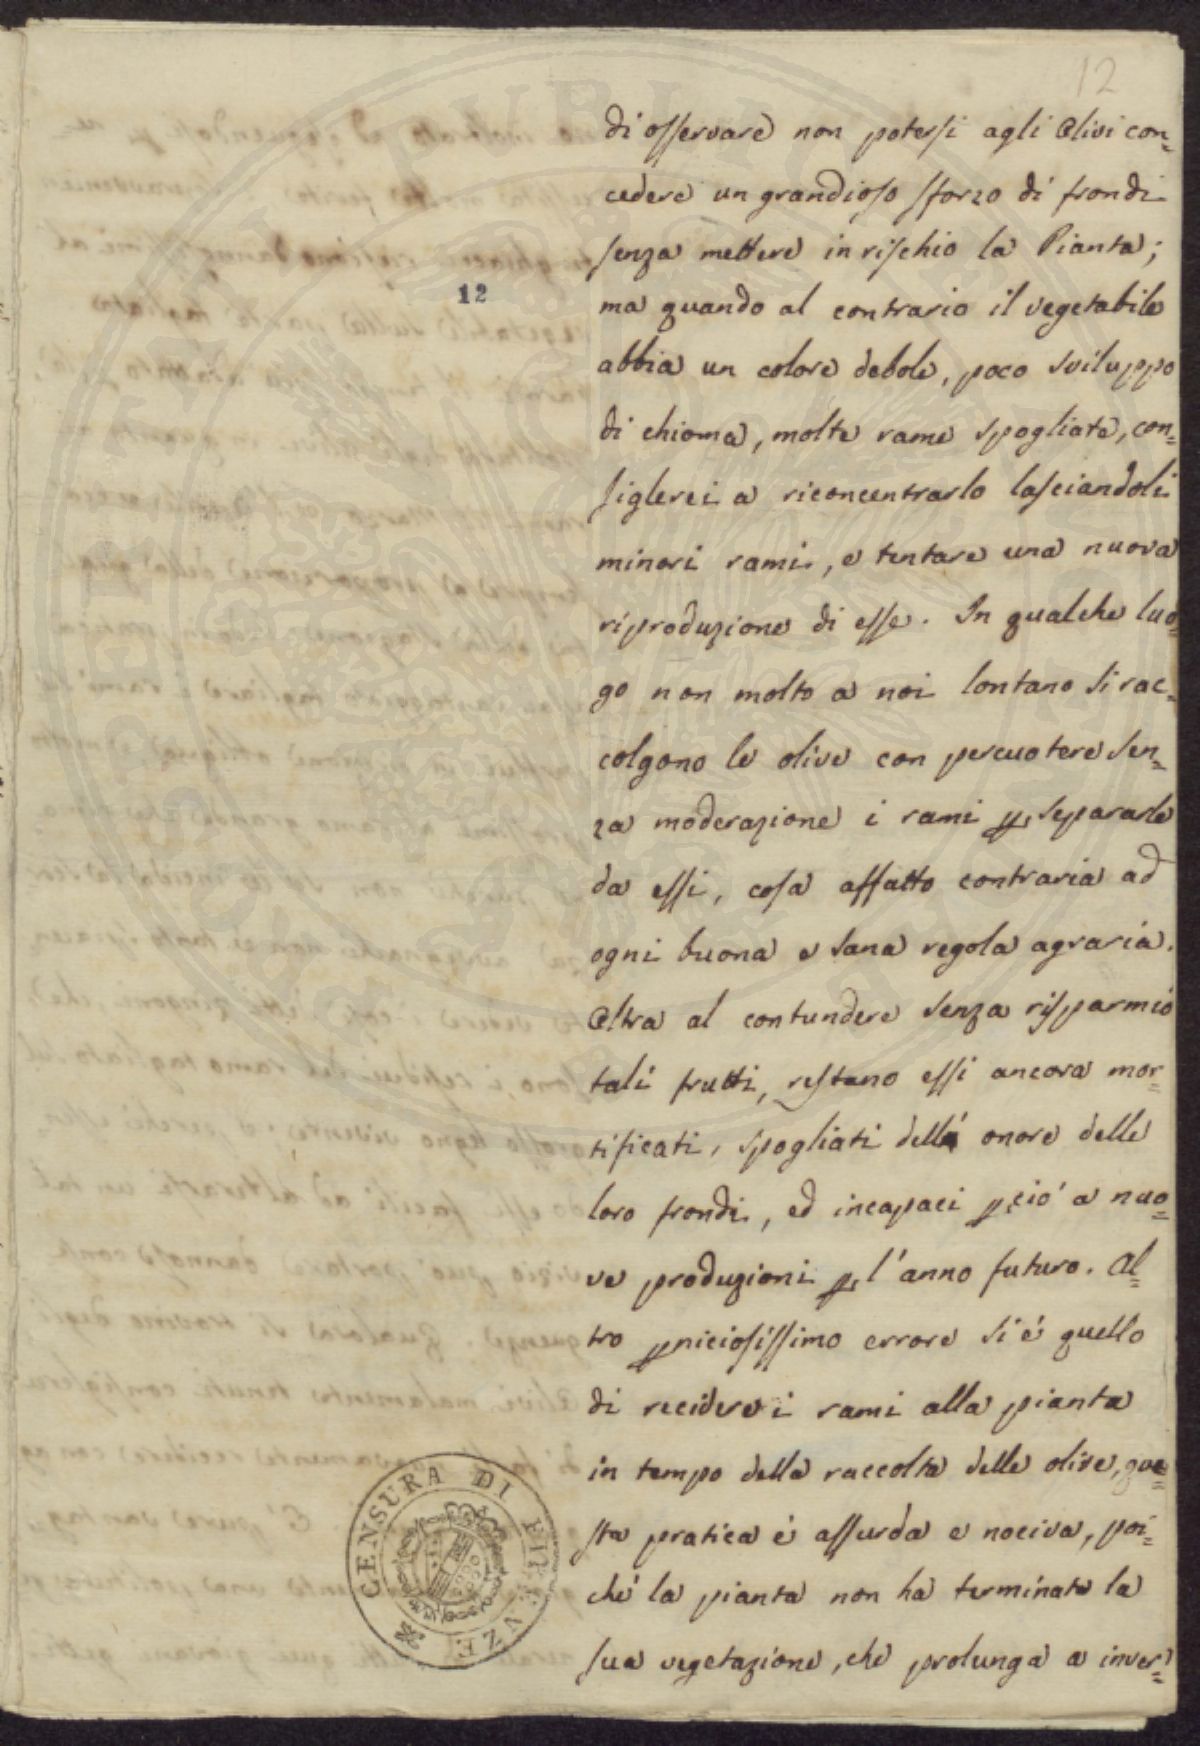 12
di osservare non potersi agli Olivi con=
cedere un grandioso sforzo di frondi
senza mettere in rischio la Pianta;
12
ma quando al contrario il vegetabile
abbia un colore debole, poco sviluppo
di chioma, molte rame spogliate, con=
siglerei a riconcentrarlo lasciandoli
minori rami, e tentare una nuova
riproduzione di esse. In qualche luo=
go non molto a noi lontano si rac=
colgono le olive con percuotere sen=
za moderazione i rami p separarle
da essi, cosa affatto contraria ad
ogni buona e sana regola agraria.
Oltra al contundere senza risparmio
tali frutti, restano essi ancora mor=
tificati, spogliati dell' onore delle
loro frondi, ed incapaci pciò a nuo=
ve produzioni p l'anno futuro. Al=
tro pniciosissimo errore si è quello
di recidere i rami alla pianta
in tempo della raccolta delle olive, que=
sta pratica è assurda e nociva, poi=
chè la pianta non ha terminata la
sua vegetazione, che prolunga a inver=
CENSURA DI FIRENZE